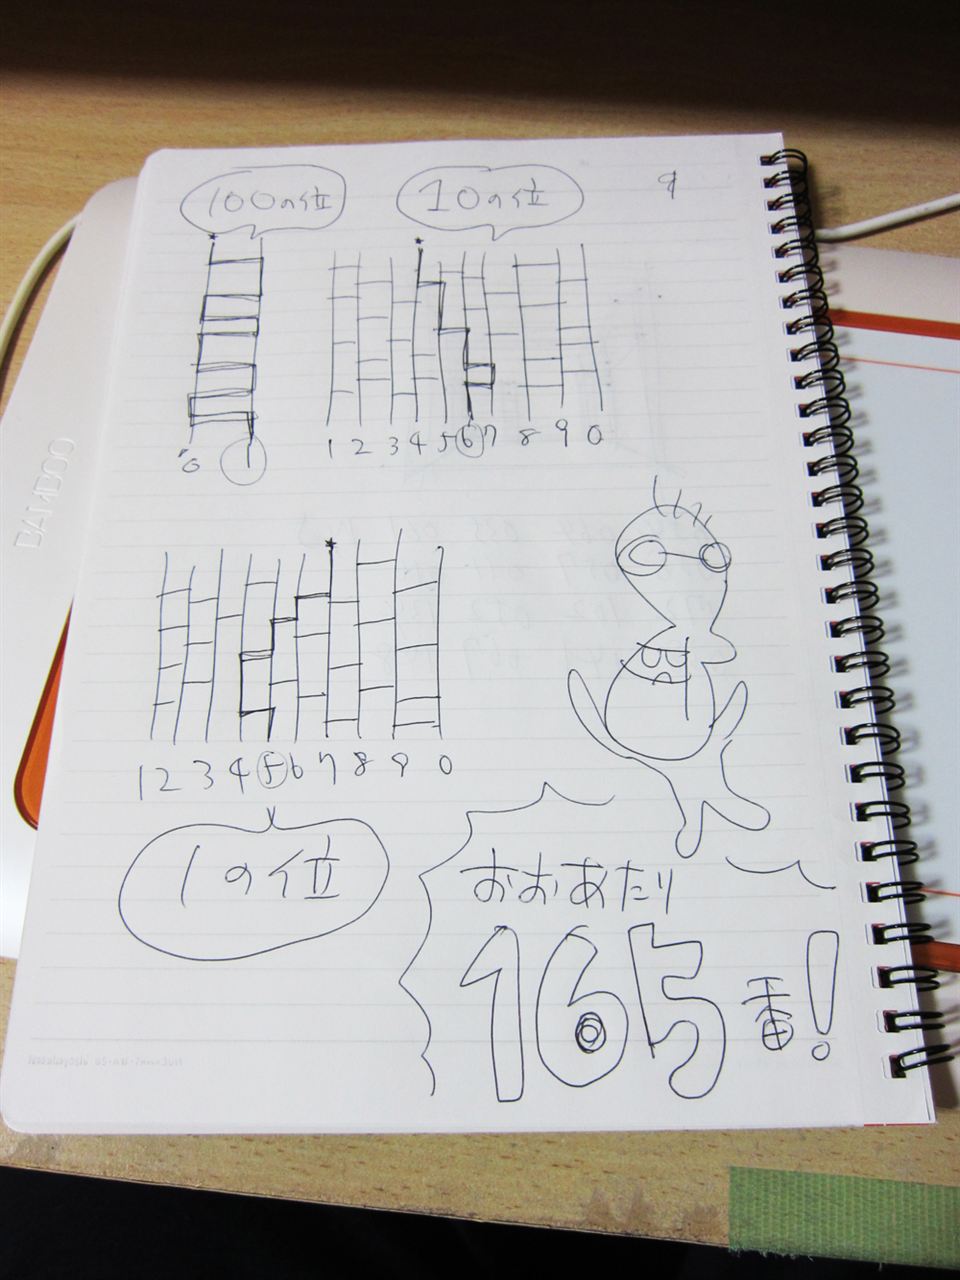 100の位
10の位
9
0 1
1 2 3 4 5 6 7 8 9 0
1 2 3 4 5 6 7 8 9 0
1の位
おおあたり
165番!
BAMBOO